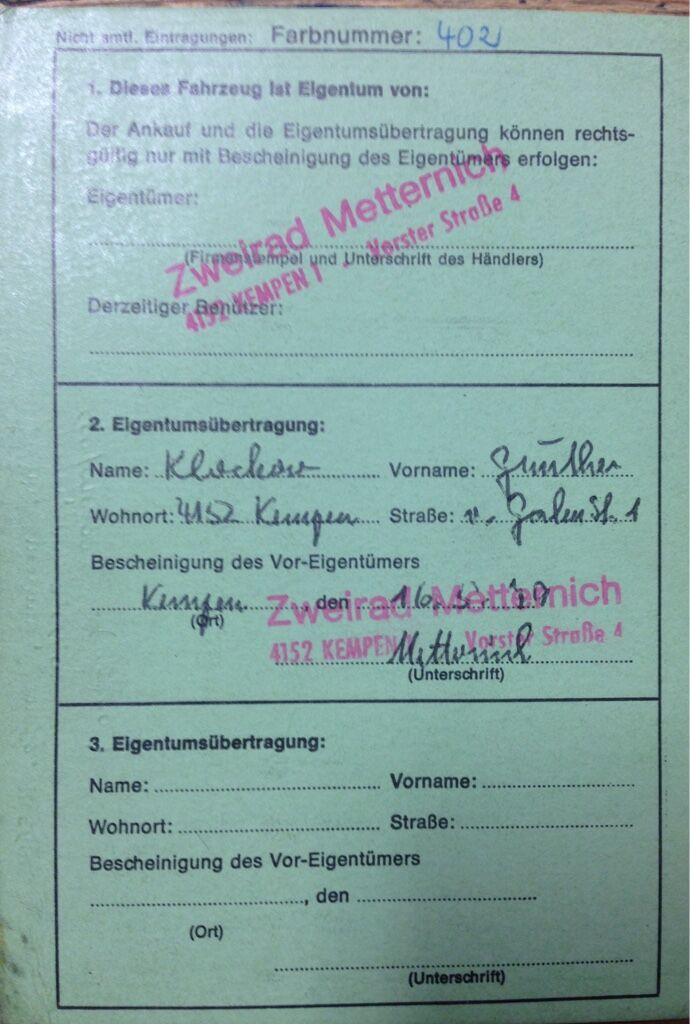 Nicht amtl. Eintragungen: Farbnummer: 402
1. Dieses Fahrzeug ist Eigentum von:
Der Ankauf und die Eigentumsübertragung können rechts-
gültig nur mit Bescheinigung des Eigentümers erfolgen:
Eigentümer:
Zweirad Metternich
4152 KEMPEN 1 - Vorster Straße 4
(Firmenstempel und Unterschrift des Händlers)
Derzeitiger Benützer:
2. Eigentumsübertragung:
Name: Klockow Vorname: Günther
Wohnort: 4152 Kempen Straße: v. Galen St. 1
Bescheinigung des Vor-Eigentümers
Kempen, den 16.
(Ort)
Zweirad Metternich
4152 KEMPEN Vorster Straße 4
Metternich
(Unterschrift)
3. Eigentumsübertragung:
Name: Vorname:
Wohnort: Straße:
Bescheinigung des Vor-Eigentümers
, den
(Ort)
(Unterschrift)